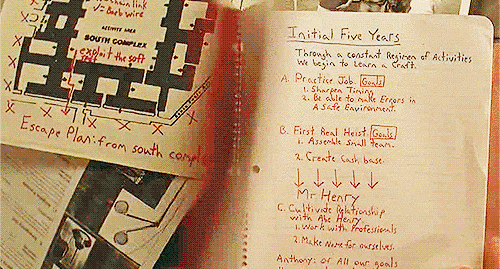 chain link
V= Barb wire
ACTIVITY AREA
SOUTH COMPLEX
exploit the soft
spot
X X X X X X X X
Escape Plan: from south compl
Initial Five Years
Through a constant Regimen of Activities
We begin to Learn a Craft.
A. Practice Job. Goals
1. Sharpen Timing
2. Be able to make Errors in
A Safe Environment.
B. First Real Heist. Goals
1. Assemble Small team.
2. Create Cash base.
Mr Henry
C. Cultivate Relationship
with Abe Henry
1. Work with Professionals
2. Make Name for ourselves.
Anthony: of All our goals